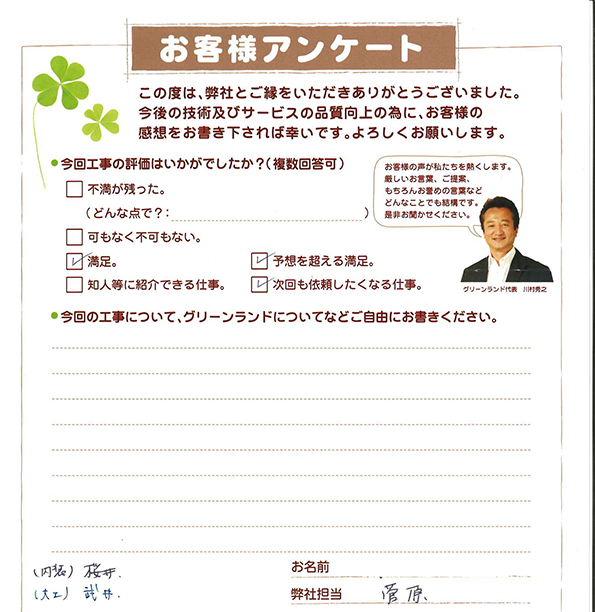 お客様アンケート
この度は、弊社とご縁をいただきありがとうございました。
今後の技術及びサービスの品質向上の為に、お客様の
感想をお書き下されば幸いです。よろしくお願いします。
今回工事の評価はいかがでしたか？(複数回答可)
不満が残った。
(どんな点で？: )
可もなく不可もない。
満足。
予想を超える満足。
知人等に紹介できる仕事。
次回も依頼したくなる仕事。
お客様の声が私たちを熱くします。
厳しいお言葉、ご提案、
もちろんお誉めの言葉など
どんなことでも結構です。
是非お聞かせください。
グリーンランド代表 川村秀之
今回の工事について、グリーンランドについてなどご自由にお書きください。
(内装) 桜井.
(大工) 武井.
お名前
弊社担当 菅原